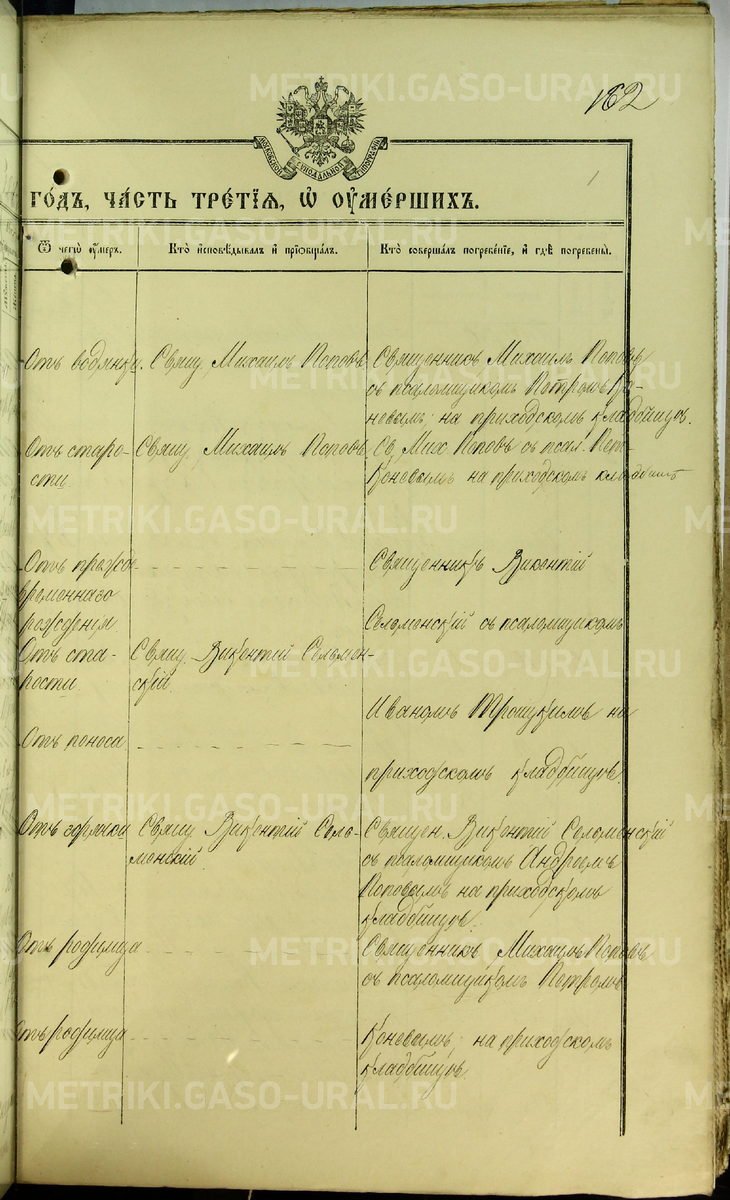 162
МОСКОВСКОЙ СѴНОДАЛЬНОЙ ТИПОГРАФІИ
ГО́ДЪ, ЧА́СТЬ ТРЕ́ТІЯ, Ѡ ОУМЕ́РШИХЪ.
Ѿ чегѡ̀ оу́меръ.
Кто̀ и҆сповѣ́дывалъ и҆ прїѡбща́лъ.
Кто̀ соверша́лъ погребе́нїе, и҆ гдѣ̀ погребены̀.
Отъ водянки.
Свящ. Михаилъ Поповъ
Священникъ Михаилъ Поповъ
съ псаломщикомъ Петромъ Ко-
невымъ на приходскомъ кладбищѣ.
Отъ старо-
сти
Свящ. Михаилъ Поповъ
Св. Мих. Поповъ съ псал. Пет.
Коневымъ на приходскомъ кладбищѣ
Отъ прежде
временнаго
рожденія
Священникъ Викентій
Селеменскій съ псаломщикомъ
Отъ ста-
рости
Свящ. Викентій Селемен-
скій.
Иваномъ на
Отъ поноса
приходскомъ кладбищѣ.
Отъ горячки
Свящ. Викентій Селе-
менскій
Священ. Викентій Селеменскій
съ псаломщикомъ Андреемъ
Поповымъ на приходскомъ
кладбищѣ.
Отъ родимца
Священникъ Михаилъ Поповъ
съ псаломщикомъ Петромъ
Отъ родимца
Коневымъ на приходскомъ
кладбищѣ.
METRIKI.GASO-URAL.RU